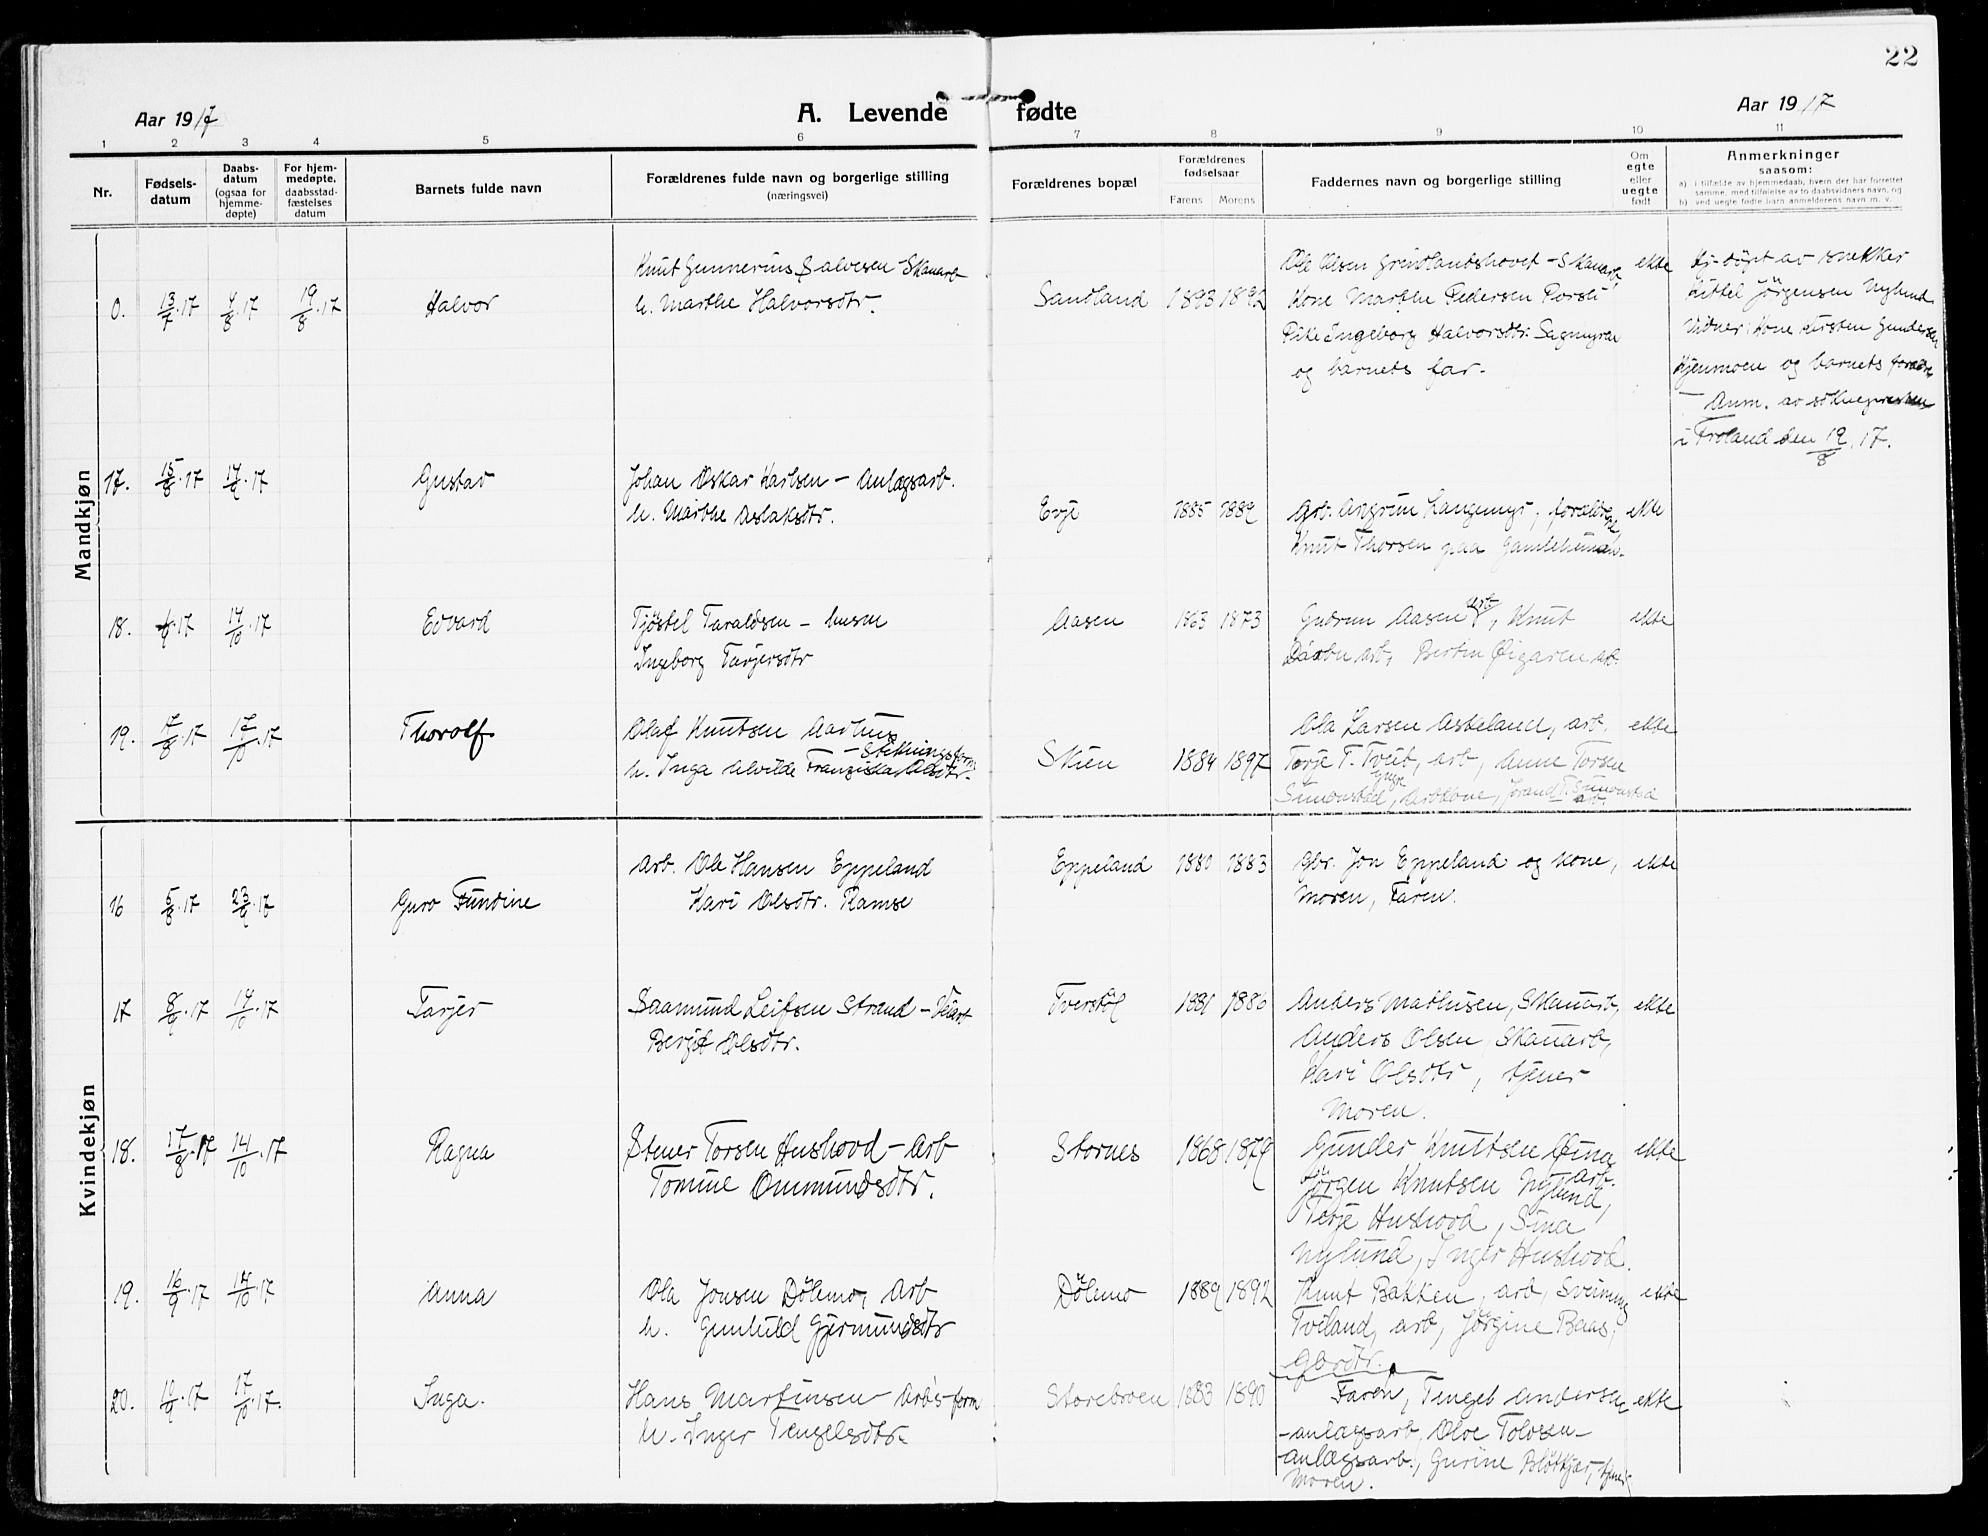 22
Aar 1917
A. Levende fødte
Aar 1917
1 2 3 4 5 6 7 8 9 10 11
Nr.
Fødsels-
datum
Daabs-
datum
(ogsaa for
hjemme-
døpte)
For hjem-
medøpte,
daabsstad-
fæstelses
datum
Barnets fulde navn
Forældrenes fulde navn og borgerlige stilling
(næringsvei)
Forældrenes bopæl
Forældrenes
fødselsaar
Farens Morens
Faddernes navn og borgerlige stilling
Om
egte
eller
uegte
født
Anmerkninger
saasom:
a) i tilfælde av hjemmedaab, hvem der har forrettet
samme, med tilføielse av to daabsvidners navn, og
b) ved uegte fødte barn anmelderens navn m. v.
Mandkjøn
0. 13/7.17 4/8.17 19/8.17 Halvor
Knut Gunnerius Salvesen Skauarb
h. Marthe Halvorsdtr.
Sandland 1893 1892
Ole Olsen Grindlandshovet - Skauarb,
Kone Marthe Pedersen Porsli
Pike Ingeborg Halvorsdtr. Sagmyra
og barnets far.
ekte
Hj. døpt av snekker
Kittel Jørgensen Nylund
Vidner: Kone Kirsten Gundersen
Hjenmoen og barnets foræld
- Anm. av sokneprest
i Froland den 19/8.17.
17. 15/8.17 17/9.17 Gustav
Johan Oskar Karlsen - Anlægsarb.
h. Marthe Aslaksdtr.
Evje 1885 1889
Arb. Langemyr, forældrene
Knut Thorsen paa
ekte
18. 17 14/10.17 Edvard
Tjøstel Taraldsen - husm
Ingeborg Tarjersdtr
Aasen 1863 1873
Gudrun Aasen arb, Knut
arb, Bertin Øigaren arb.
ekte
19. 17/8.17 17/10.17 Thorolf
Olaf Knutsen Aarhus
- Stikningsform
h. Inga Alvilde Franziska Olsdtr.
Skien 1884 1897
Ola Larsen Askeland, arb.
Terje T. Tveit, arb, Anne Torsen
Simonstad, yngre Jorand T. Simonstad
arb.
ekte
Kvindekjøn
16 5/8.17 23/9.17 Guro Fundine
Arb. Ole Hansen Eppeland
Kari Olsdtr. Ramse
Eppeland 1880 1883
Gbr. Jon Eppeland og kone,
Moren, Faren.
ekte
17 8/9.17 14/10.17 Tarjer
Saamund Leifsen Strand -
Bergit Olsdtr.
Tverstøl 1881 1886
Anders Mathisen, Skauarb,
Anders Olsen, Skauarb,
Kari Olsdtr, tjener
Moren.
ekte
18. 17/8.17 14/10.17 Ragna
Stener Torsen Hushovd - Arb
Tomine Ommundsdtr.
Stornes 1868 1879
Gunder Knutsen Øina
arb.
Jørgen Knutsen Nylund,
Terje Hushovd, Sina
Nylund, Inger Hushovd.
ekte
19. 16/9.17 14/10.17 Anna
Ola Jonsen Dølemo, Arb
h. Gunhild Gjermundsdtr
Dølemo 1889 1892
Knut Bakken, arb, Sveinung
Tveland, arb, Jørgine Baas,
Gbrdtr.
ekte
20. 17 17/10.17. Inga.
Hans Martinsen - Arb's-form
h. Inger Tengelsdtr.
Storebroen 1883 1890
Faren, Tengel Andersen
- anlægsarb, Olve Tolvsen -
Anlægsarb., Gurine Bløtkjær, tjener
Moren.
ekte